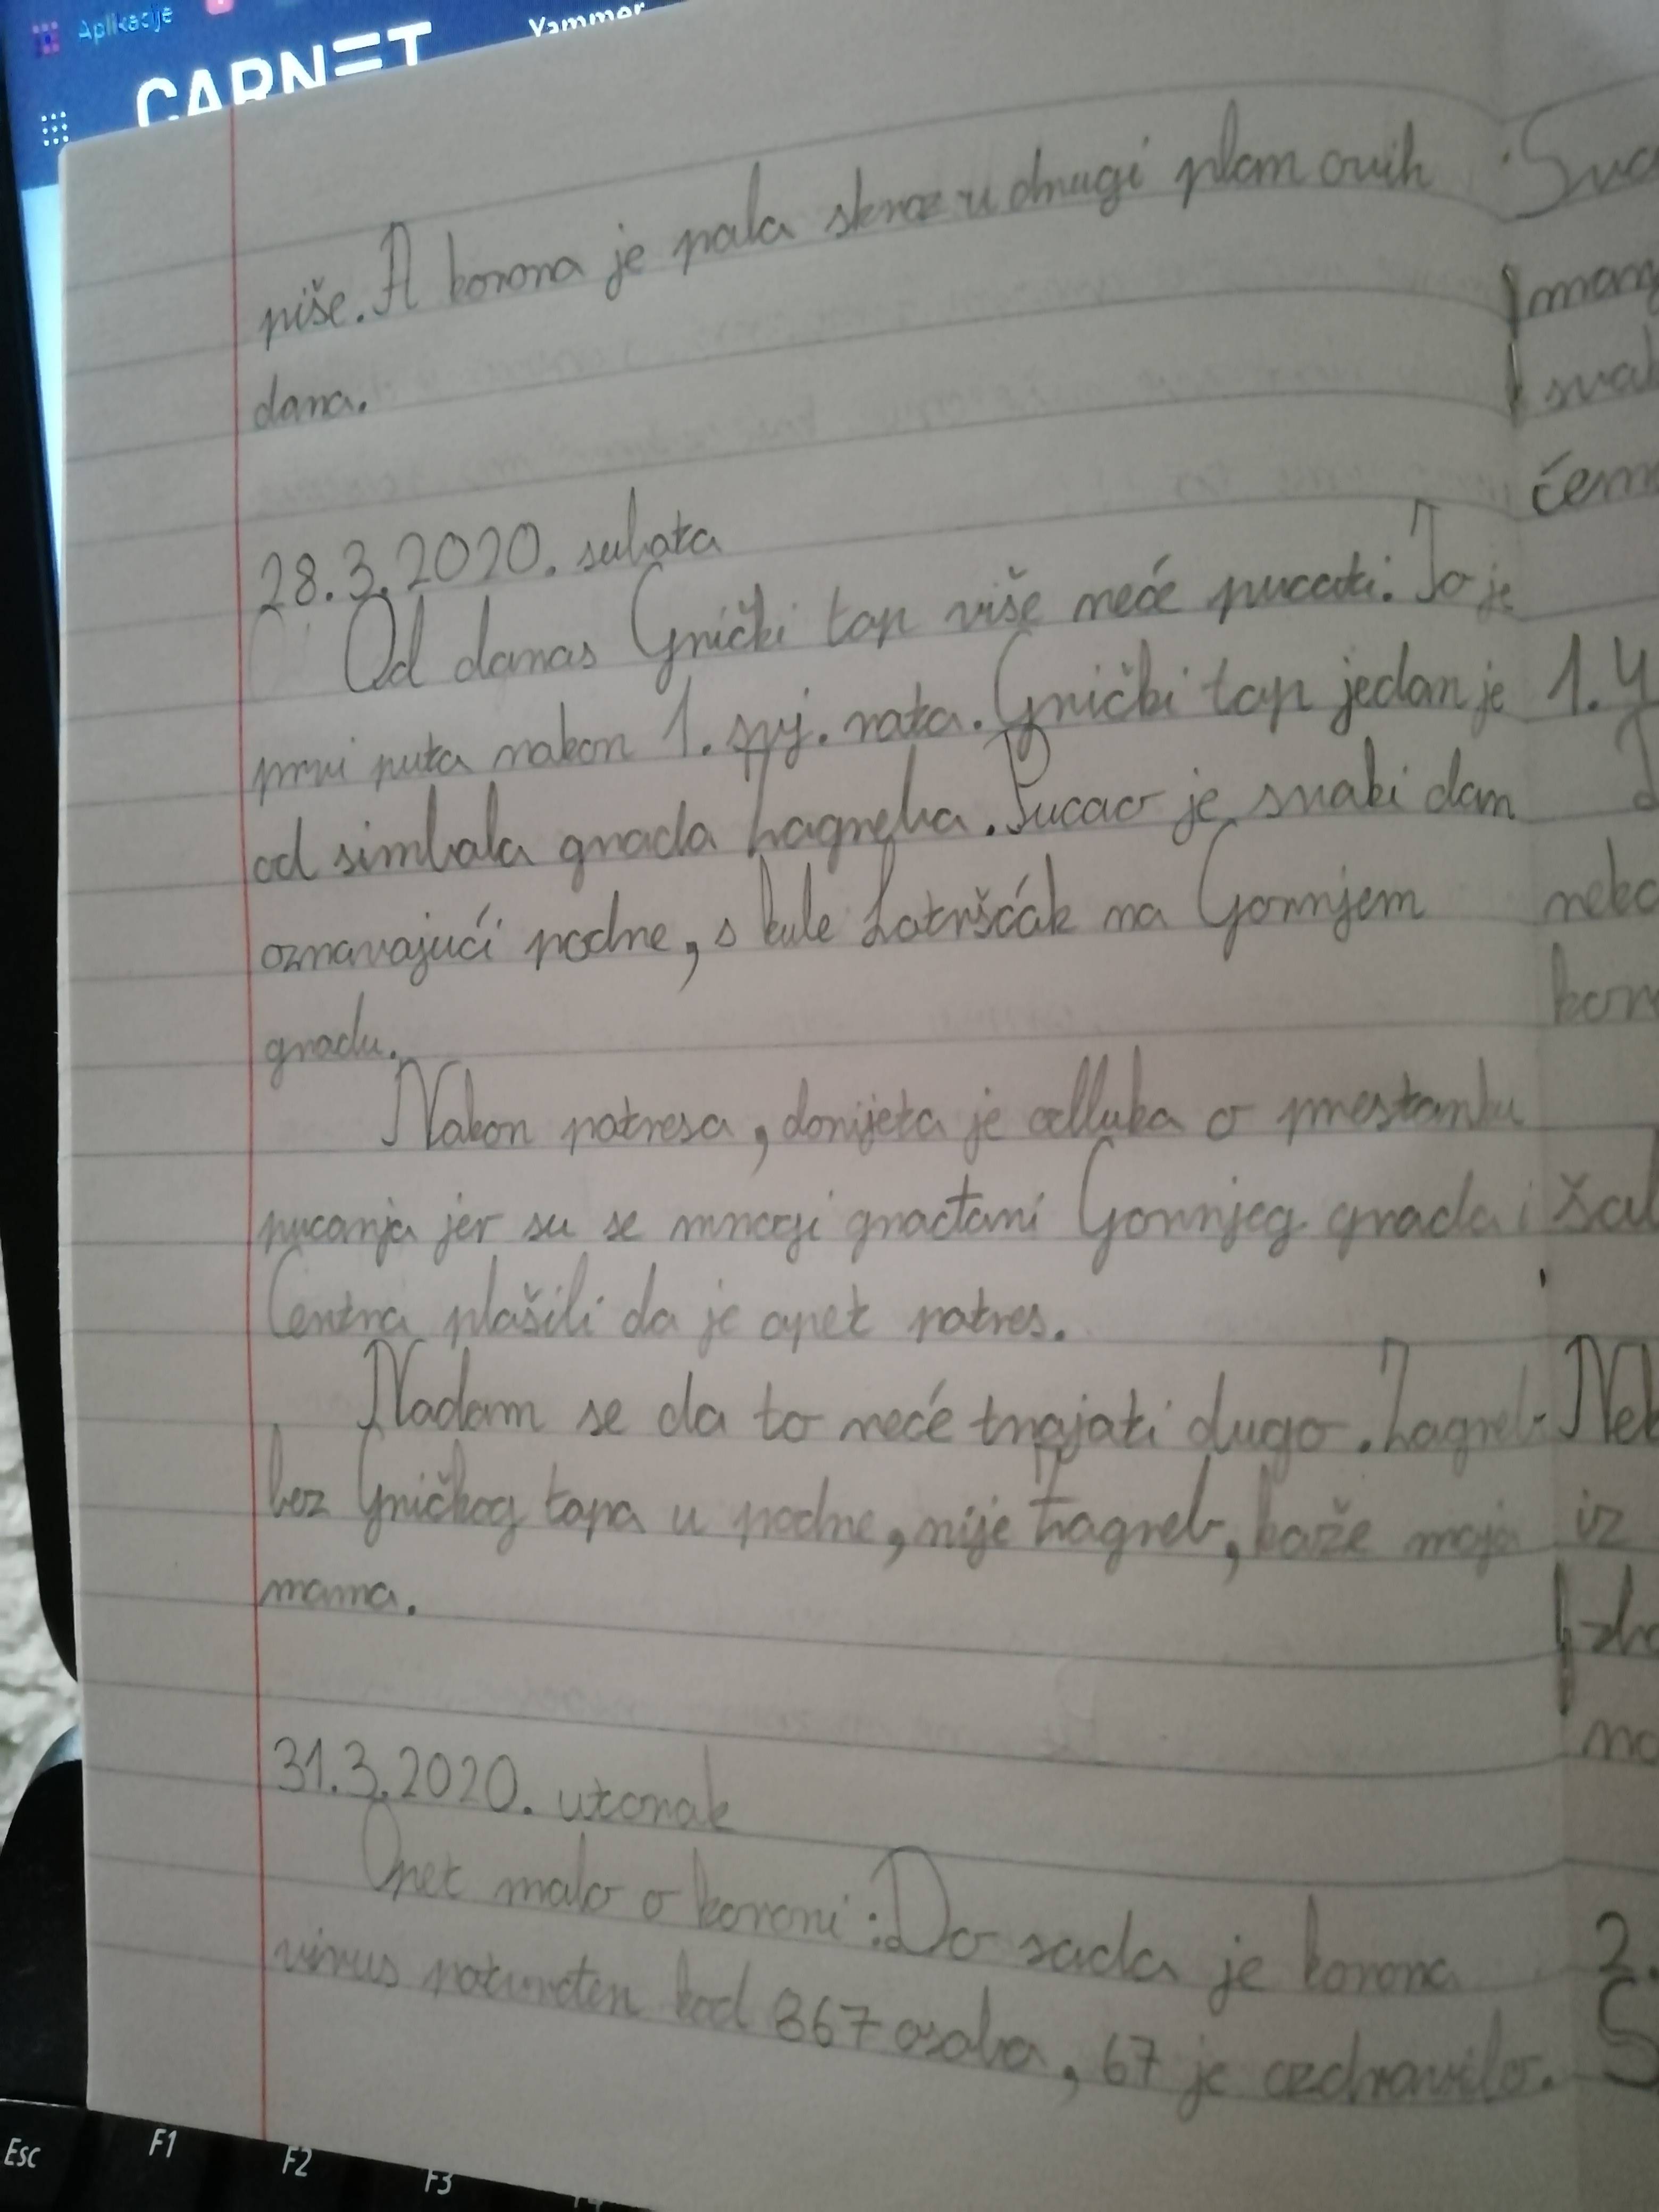 Aplikacije
CARNET
Yammer
piše. A korona je pala skroz u drugi plan ovih
dana.
28.3.2020. subota
Od danas Grički top više neće pucati. To je
prvi puta nakon 1. svj. rata. Grički top jedan je
od simbola grada Zagreba. Pucao je svaki dan
oznavajući podne, s kule Lotršćák na Gornjem
gradu.
Nakon potresa, donijeta je odluka o prestanku
pucanja jer su se mnogi građani Gornjeg grada i
Centra plašili da je opet potres.
Nadam se da to neće trajati dugo. Zagreb
bez Gričkog topa u podne, nije Zagreb, kaže moja
mama.
31.3.2020. utorak
Opet malo o koroni: Do sada je korona
virus potvrđen kod 867 osoba, 67 je ozdravilo.
čem
1. 4
neko
iz
2.
Esc
F1
F2
F3